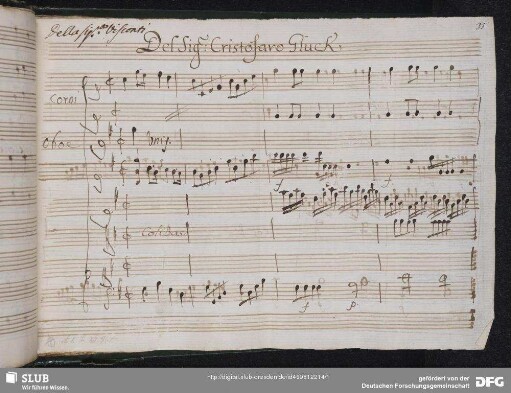 Della Sig.ra Visconti
35
Del Sig.r Cristofaro Gluck.
Corni
Oboe
Unis.
f
f
Col Basso
f
p
SLUB
Wir führen Wissen.
gefördert von der
Deutschen Forschungsgemeinschaft
DFG